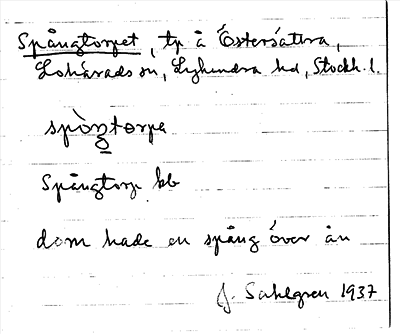 Spångtorpet, tp å Östersättra,
Lohärads sn, Lyhundra hd, Stockh. l.
spòŋtorpe
Spångtorp kb
dom hade en spång över ån
J. Sahlgren 1937